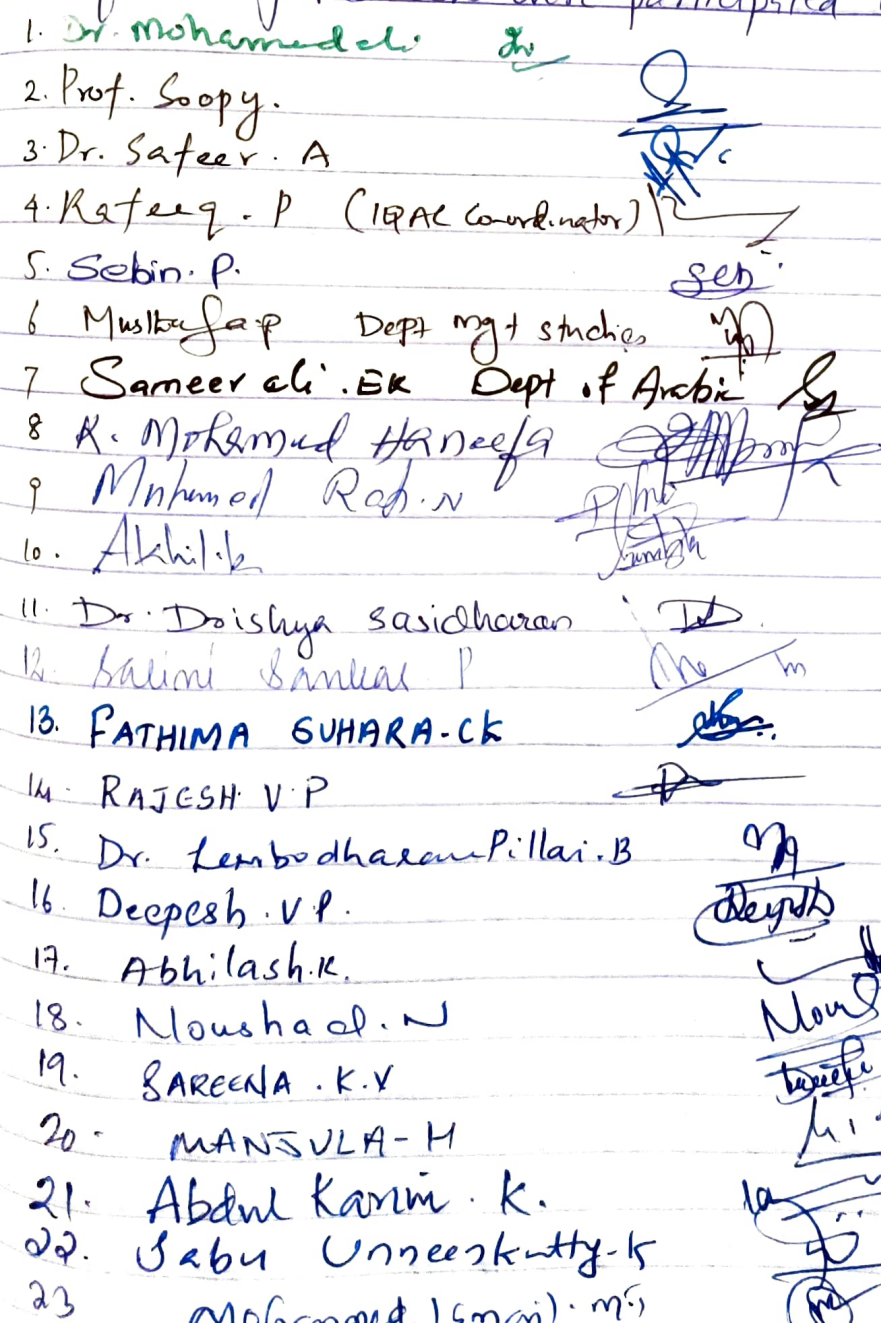 participated
1. Dr. Mohamedali
2. Prof. Soopy.
3. Dr. Safeer. A
4. Rafeeq. P (IQAC Coordinator)
5. Sebin. P. Seb
6 Musthafa.p Dept mgt studies
7 Sameer ali. EK Dept of Arabic
8 K. Mohamed Haneefa
9 Muhamed Rafi. N
10. Akhil.k
11. Dr. Drishya Sasidharan
12. Salini Sankar P
13. FATHIMA SUHARA-CK
14. RAJESH V.P
15. Dr. Lembodharan Pillai. B
16. Deepesh. V P. Deepesh
17. Abhilash.K.
18. Noushad. N
19. SAREENA. K.V
20. MANJULA-H
21. Abdul Karim. K.
22. Sabu Unneenkutty-K
23 Mohammed Ismail.